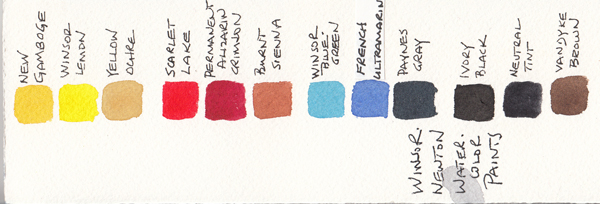 NEW
GAMBOGE
WINSOR
LEMON
YELLOW
OCHRE
SCARLET
LAKE
PERMANENT
ALIZARIN
CRIMSON
BURNT
SIENNA
WINSOR
BLUE-
GREEN
FRENCH
ULTRAMARIN
PAYNES
GRAY
IVORY
BLACK
NEUTRAL
TINT
VANDYKE
BROWN
WINSOR.
NEWTON
WATER.
COLOR
PAINTS